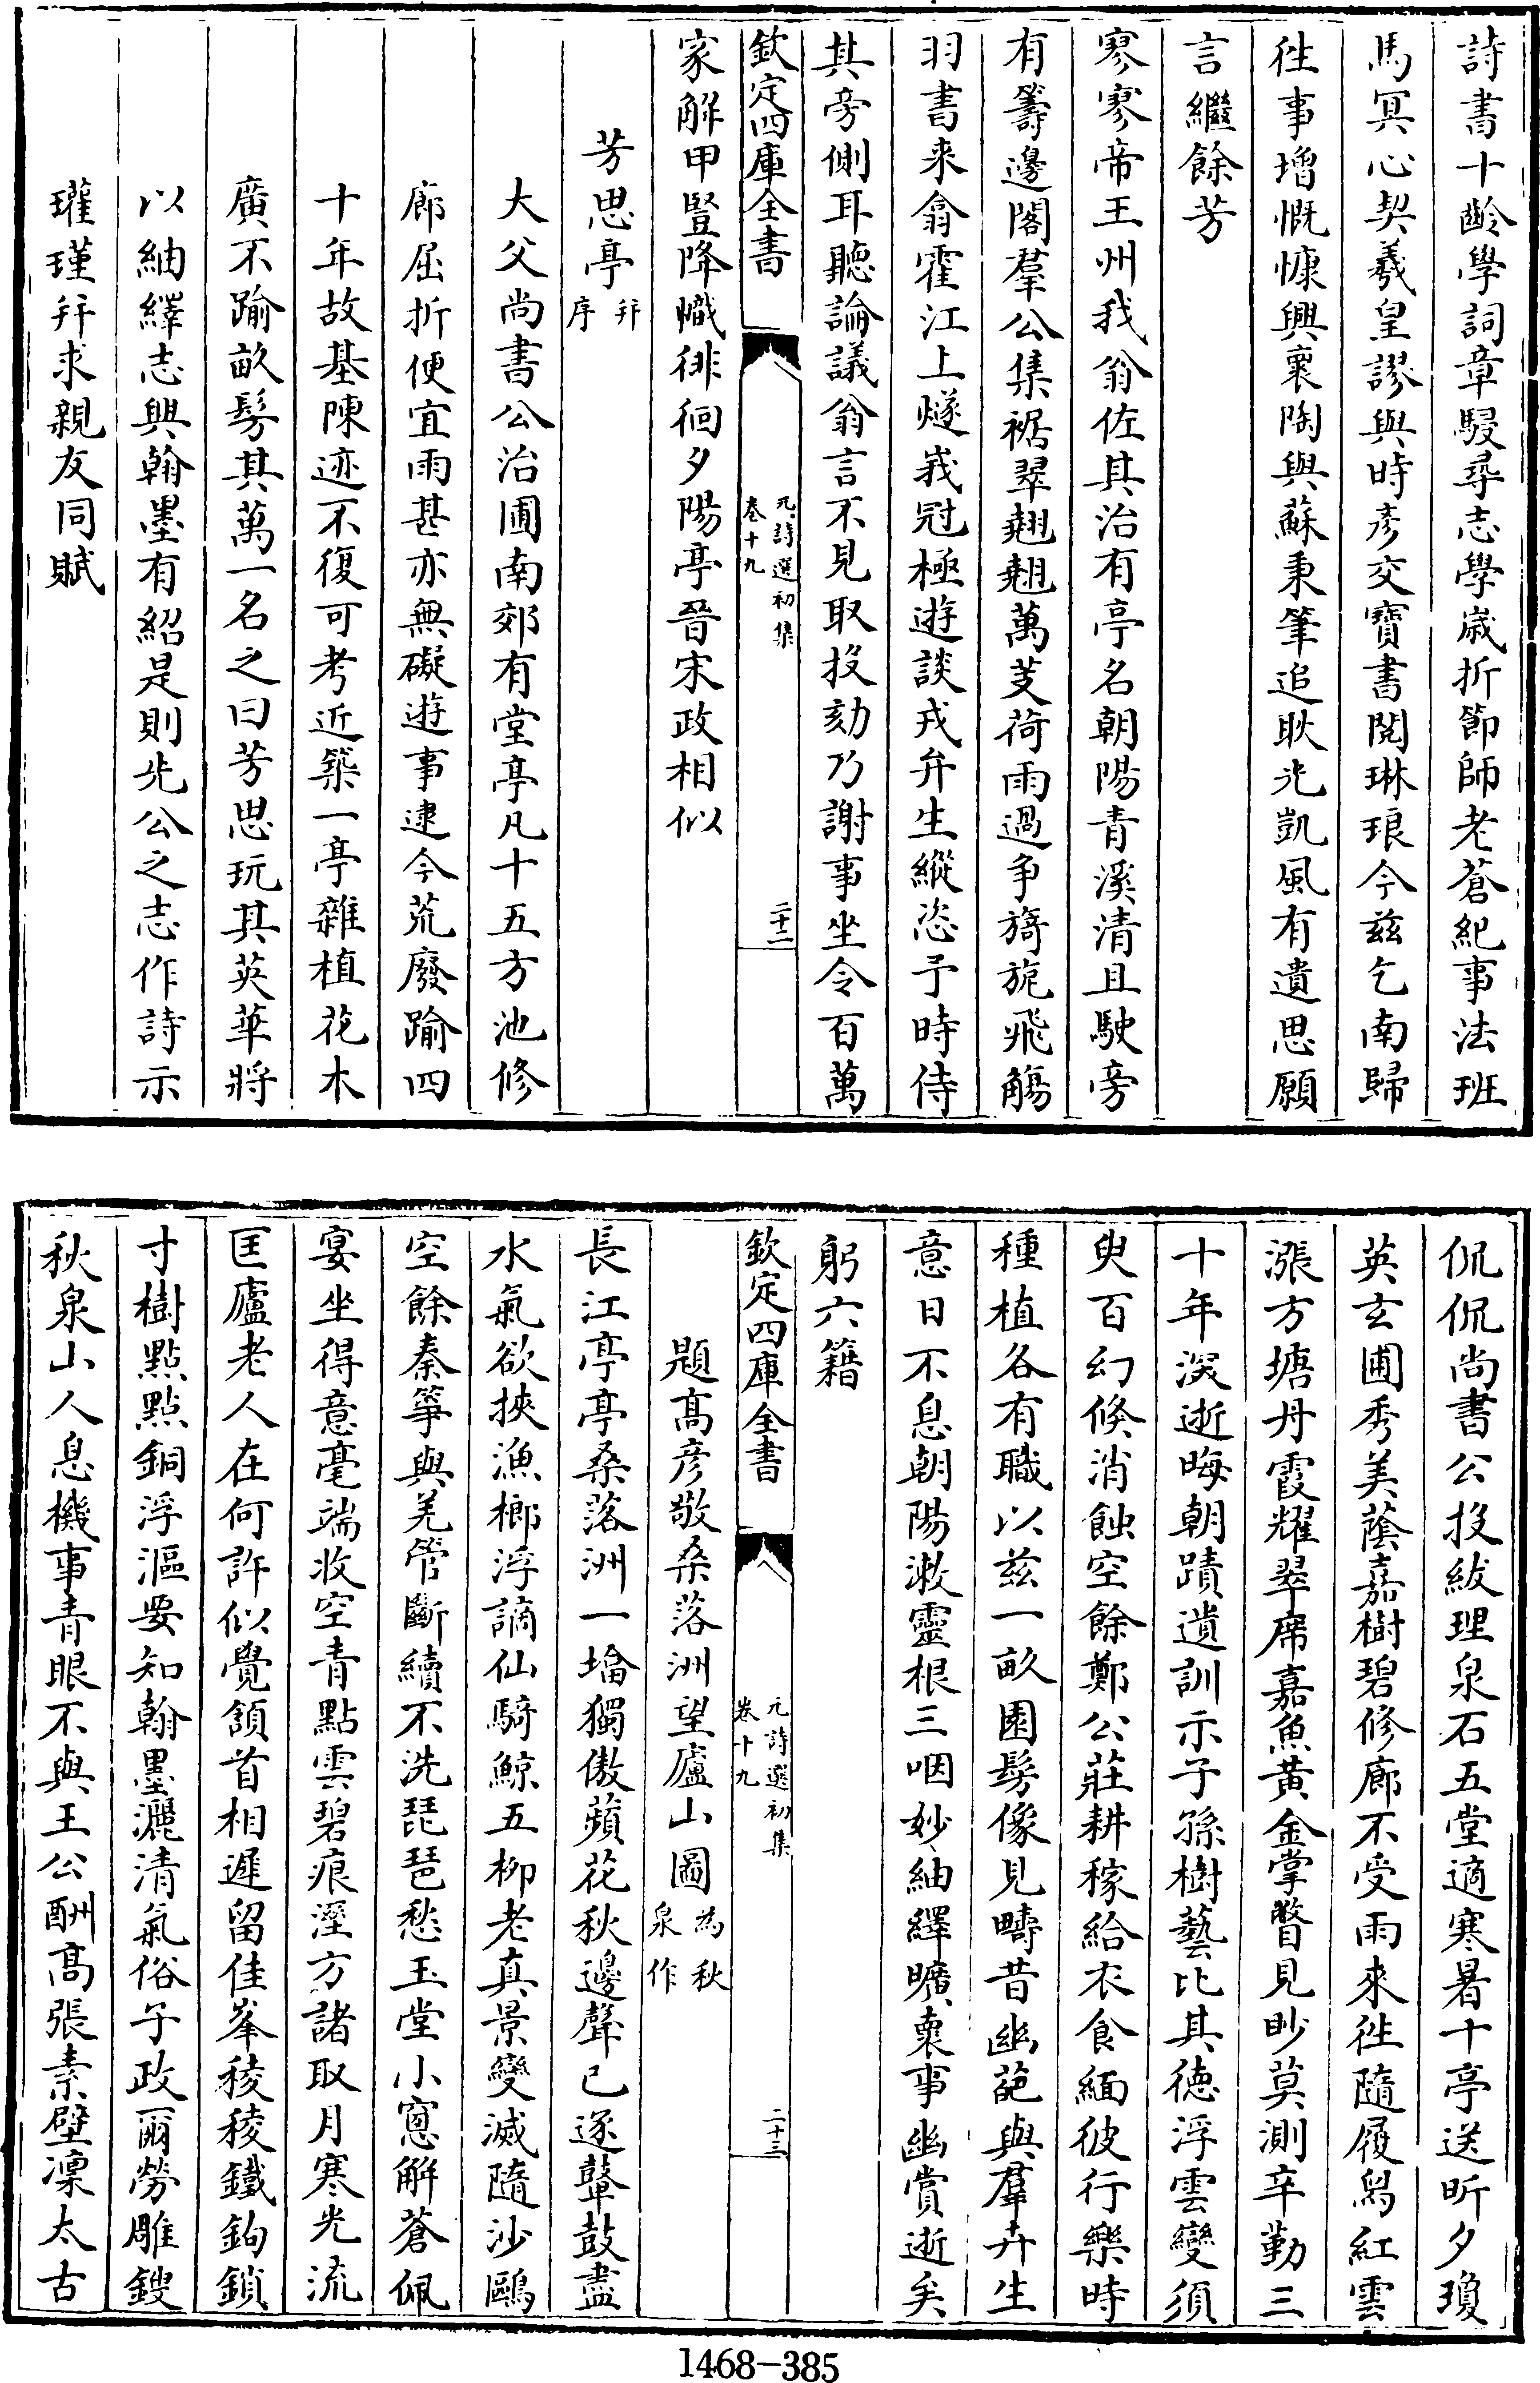 詩書十齡學詞章駸尋志學歲折節師老蒼紀事法班
馬冥心契羲皇謬與時彦交寶書閱琳琅今兹乞南歸
徃事增慨慷興褱陶與蘇秉筆追耿光凱風有遺思願
言繼餘芳
寥寥帝王州我翁佐其治有亭名朝陽青溪清且駛旁
有籌邊閣羣公集裾翠翹翹萬芰荷雨過争旖旎飛觴
羽書来翕霍江上燧峩冠極遊談戎弁生縱恣予時侍
其旁側耳聽論議翁言不見取投劾乃謝事坐令百萬
欽定四庫全書
元詩選初集
卷十九
二十二
家解甲豎降幟徘徊夕陽亭晉宋政相似
芳思亭
并
序
大父尚書公治圃南郊有堂亭凡十五方池修
廊屈折便宜雨甚亦無礙遊事逮今荒廢踰四
十年故基陳迹不復可考近築一亭雜植花木
廣不踰畝髣其萬一名之曰芳思玩其英華將
以紬繹志興翰墨有紹是則先公之志作詩示
瓘瑾并求親友同賦
侃侃尚書公投紱理泉石五堂適寒暑十亭送昕夕瓊
英玄圃秀美蔭嘉樹碧修廊不受雨來徃隨履舄紅雲
漲方塘丹霞耀翠席嘉魚黄金掌瞥見眇莫測辛勤三
十年淚逝晦朝蹟遺訓示子孫樹藝比其徳浮雲變須
臾百幻倏消蝕空餘鄭公莊耕稼給衣食緬彼行樂時
種植各有職以兹一畝園髣像見疇昔幽葩與羣卉生
意日不息朝陽潄靈根三咽妙紬繹曠褱事幽賞逝矣
躬六籍
欽定四庫全書
元詩選初集
卷十九
二十三
題高彦敬桑落洲望廬山圖
為秋
泉作
長江亭亭桑落洲一㙮獨傲蘋花秋邊聲已逐鼙鼓盡
水氣欲挾漁榔浮謫仙騎鯨五柳老真景變滅隨沙鷗
空餘秦箏與羌管斷續不洗琵琶愁玉堂小窻解蒼佩
宴坐得意毫端收空青點雲碧痕溼方諸取月寒光流
匡廬老人在何許似覺頷首相遲留佳峯稜稜鐵鉤鎖
寸樹點點銅浮漚要知翰墨灑清氣俗子政爾勞雕鎪
秋泉山人息機事青眼不與王公酬高張素壁凛太古
1468-385